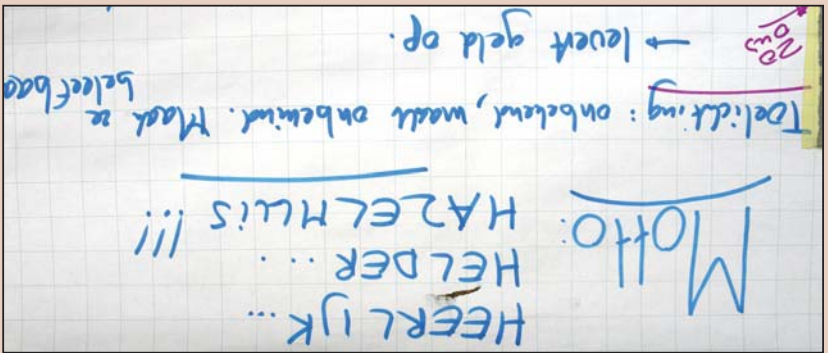 HEERLIJK...
HELDER ...
Motto: HAZELMUIS !!!
Toelichting: onbekend, maakt onbemind. Maak ze
beleefbaa
→ levert geld op.